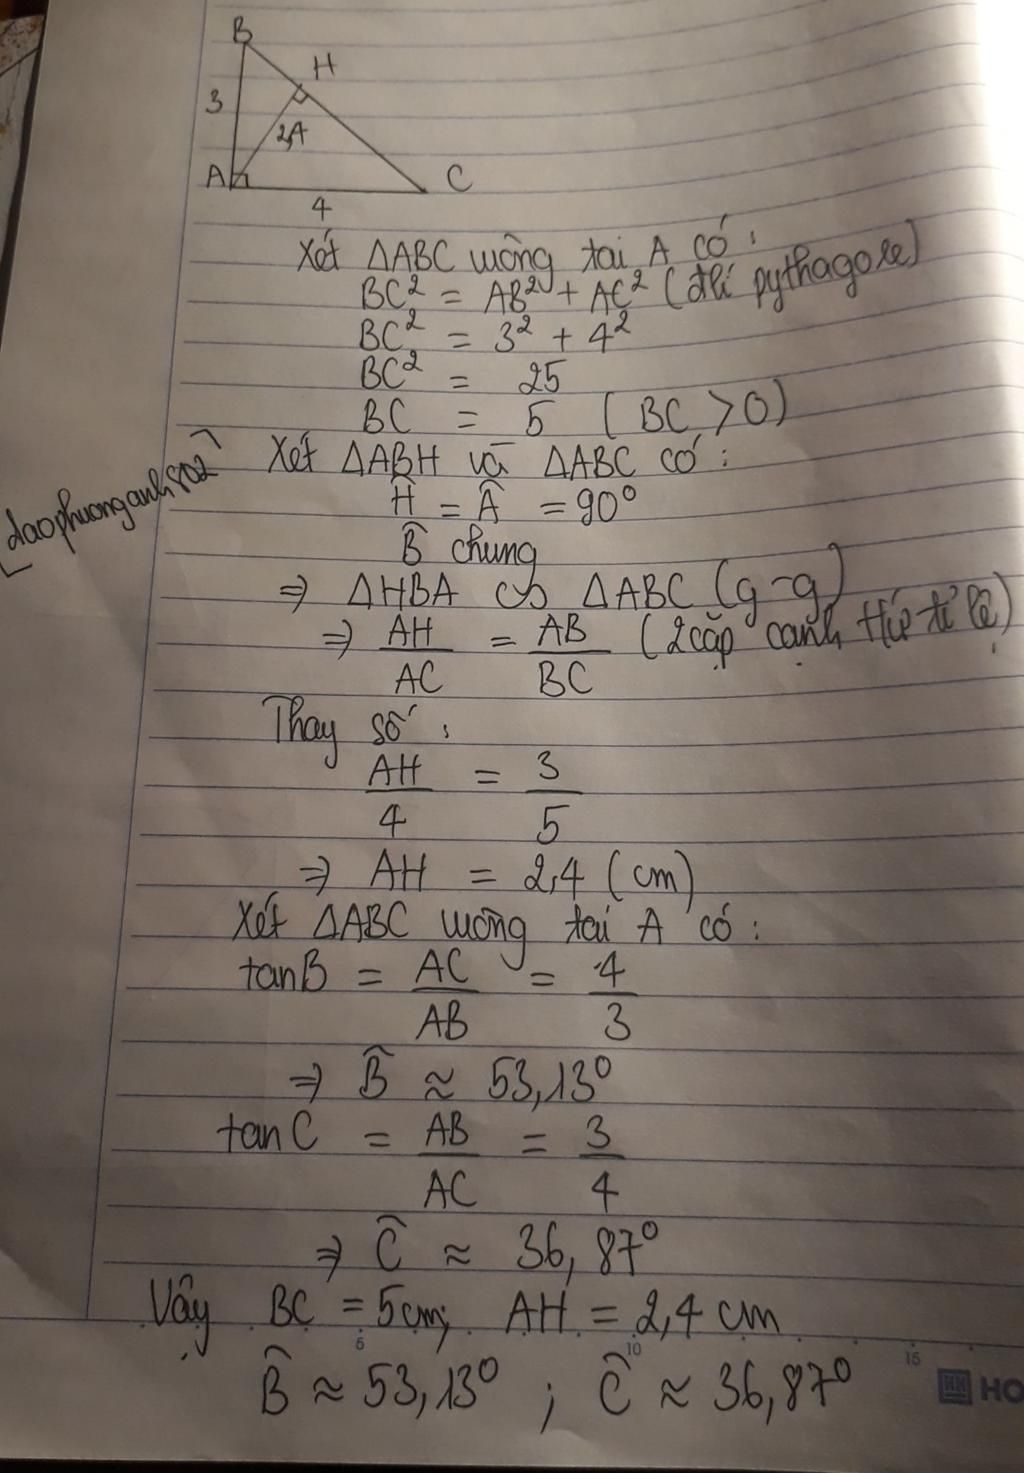 B
H
3
2,4
A
C
4
Xét ΔABC vuông tại A có:
BC² = AB² + AC² (đlí pythagore)
BC² = 3² + 4²
BC² = 25
BC = 5 (BC > 0)
Xét ΔABH và ΔABC có:
daophuonganh802
Ĥ = Â = 90°
B̂ chung
⇒ ΔHBA ∽ ΔABC (g-g)
⇒ AH/AC = AB/BC (2 cặp cạnh t/ứ tỉ lệ)
Thay số:
AH/4 = 3/5
⇒ AH = 2,4 (cm)
Xét ΔABC vuông tại A có:
tanB = AC/AB = 4/3
⇒ B̂ ≈ 53,13°
tanC = AB/AC = 3/4
⇒ Ĉ ≈ 36,87°
Vậy BC = 5cm; AH = 2,4 cm
5 10 15
B̂ ≈ 53,13° ; Ĉ ≈ 36,87°
HO